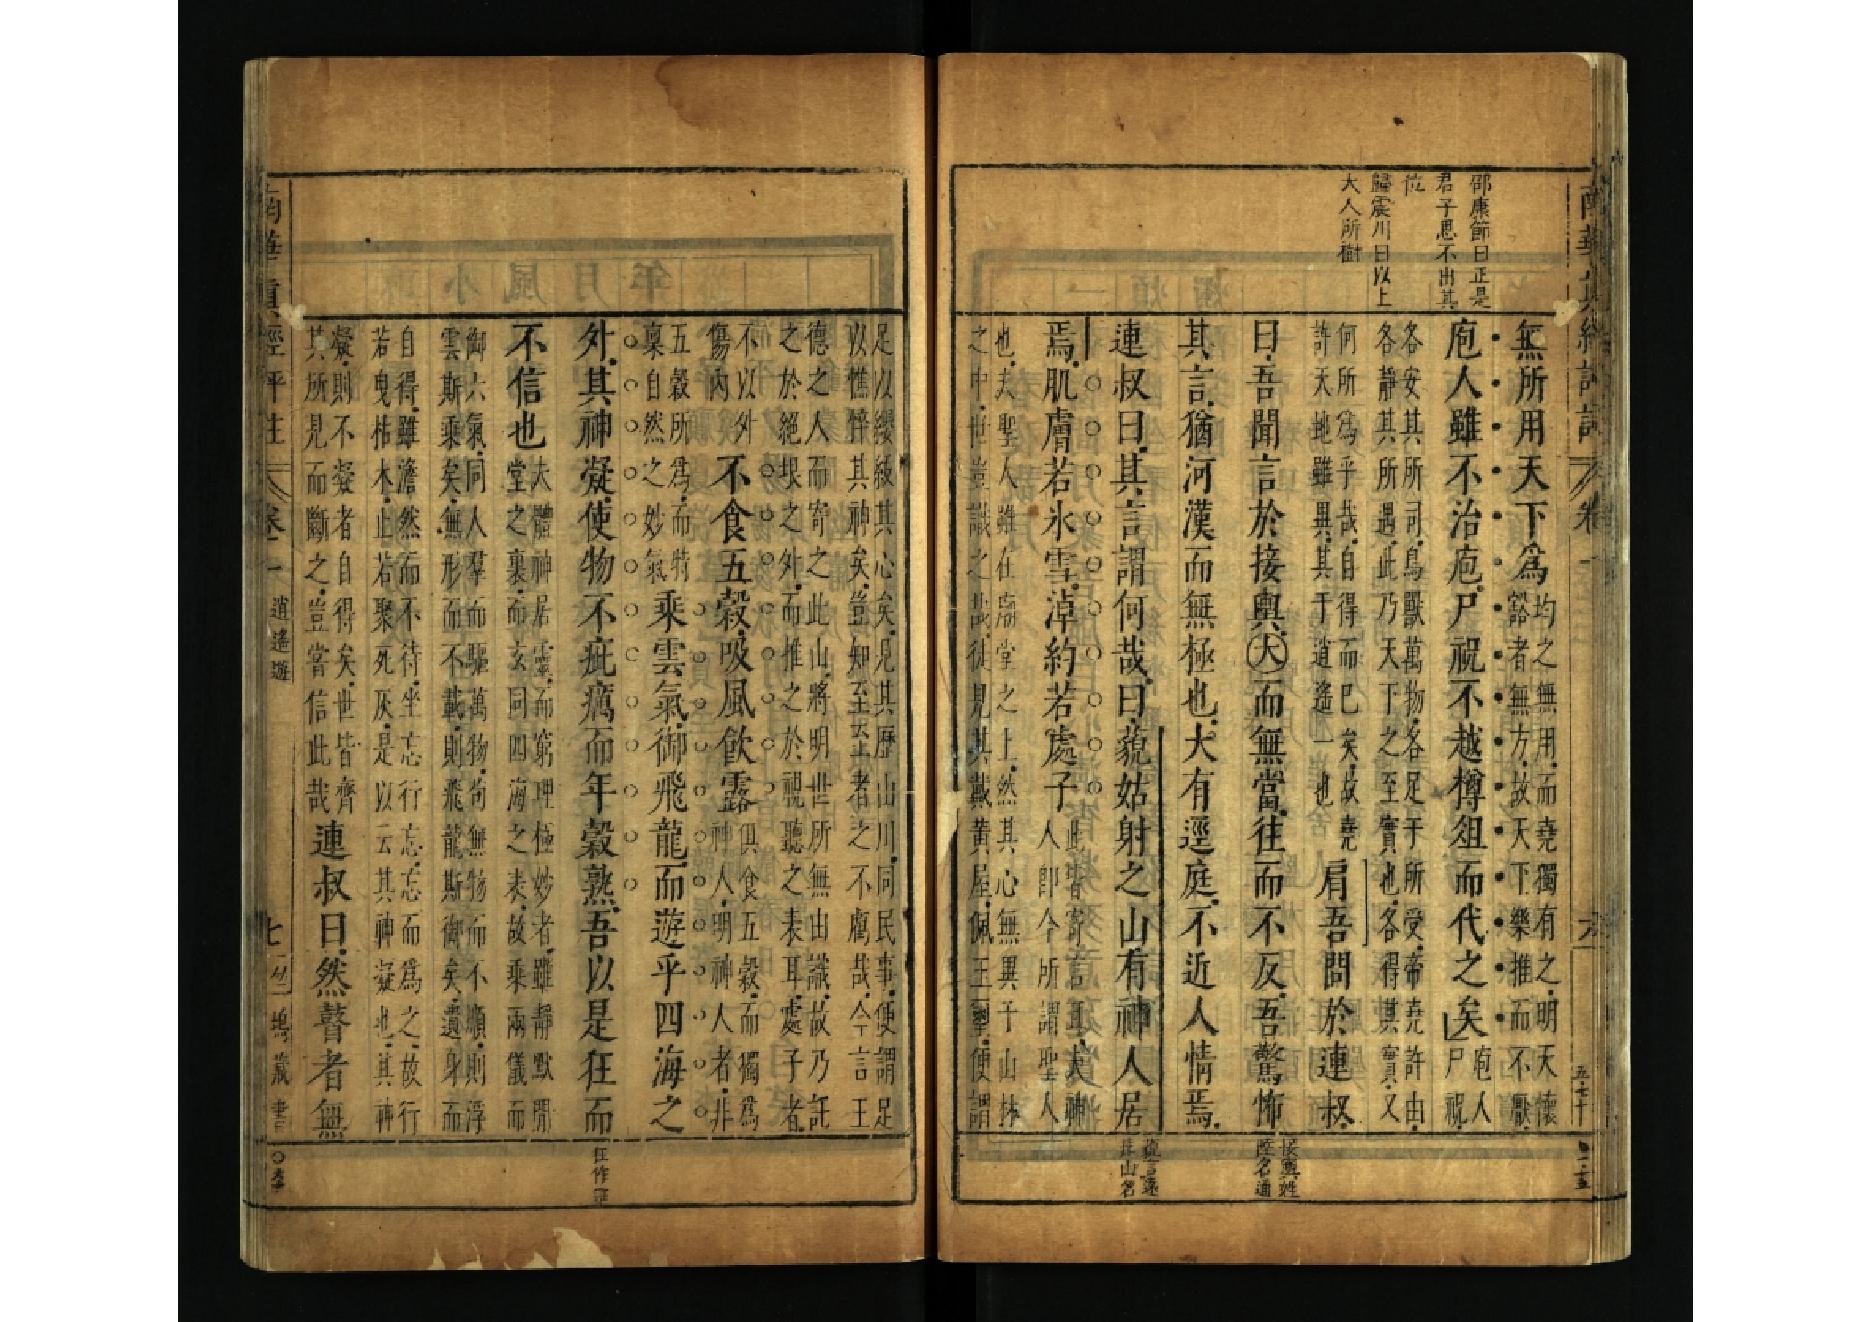 邵康節曰正是
君子思不出其
位
歸震川曰以上
大人所樹
無所用天下爲
均之無用而堯獨有之明天懷
豁者無方故天下樂推而不厭
庖人雖不治庖尸祝不越樽俎而代之矣
庖人
尸祝
各安其所司鳥獸萬物各足于所受帝堯許由
各靜其所遇此乃天下之至實也各得其實又
何所爲乎哉自得而已矣故堯
許天地雖異其于逍遙一也
肩吾問於連叔
曰吾聞言於接輿大而無當往而不反吾驚怖
其言猶河漢而無極也大有逕庭不近人情焉
連叔曰其言謂何哉曰藐姑射之山有神人居
焉肌膚若氷雪淖約若處子
此皆寄言耳夫神
人卽今所謂聖人
也夫聖人雖在廟堂之上然其心無異于山林
之中世豈識之哉徒見其戴黃屋佩玉璽便謂
接輿姓
陸名通
山名
南華眞經評註
卷一
足以纓紱其心矣見其歷山川同民事便謂足
以憔悴其神矣豈知至至者之不虧哉今言王
德之人而寄之此山將明世所無由識故乃託
之於絕垠之外而推之於視聽之表耳處子者
不以外
傷內
不食五穀吸風飮露
俱食五穀而獨爲
神人明神人者非
五穀所爲而特
稟自然之妙氣
乘雲氣御飛龍而遊乎四海之
外其神凝使物不疵癘而年穀熟吾以是狂而
不信也
夫體神居靈而窮理極妙者雖靜默閒
堂之裏而玄同四海之表故乘兩儀而
御六氣同人羣而驅萬物苟無物而不順則浮
雲斯乘矣無形而不載則飛龍斯御矣遺身而
自得雖澹然而不待坐忘行忘忘而爲之故行
若曳枯木止若聚死灰是以云其神凝也其神
凝則不凝者自得矣世皆齊
其所見而斷之豈嘗信此哉
連叔曰然瞽者無
南華眞經評註
卷一
逍遙遊
七